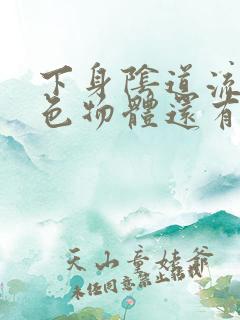 下身陰道流
色物體還有
天山童姥爺
未經同意禁止轉載